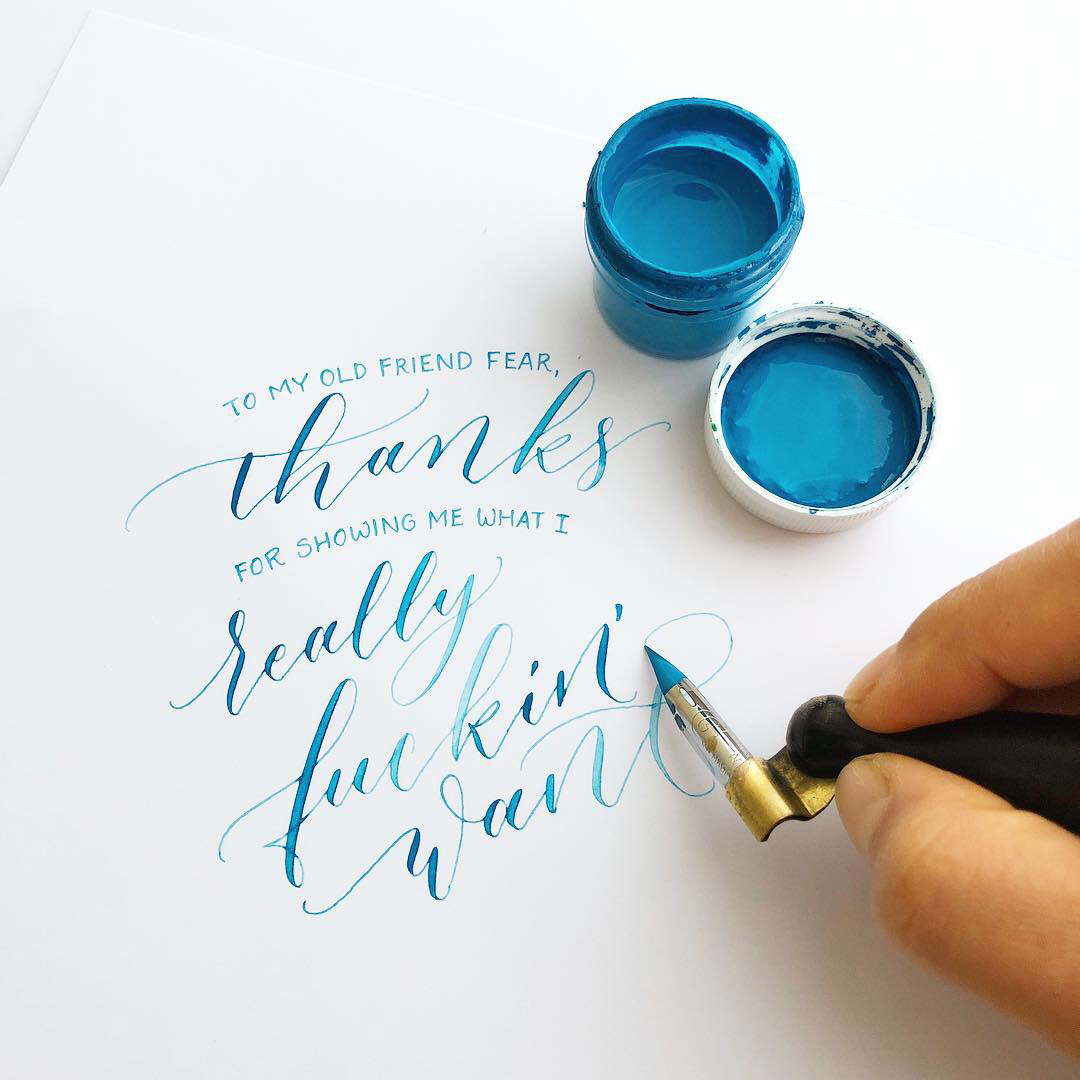 TO MY OLD FRIEND FEAR,
thanks
FOR SHOWING ME WHAT I
really
fuckin'
want